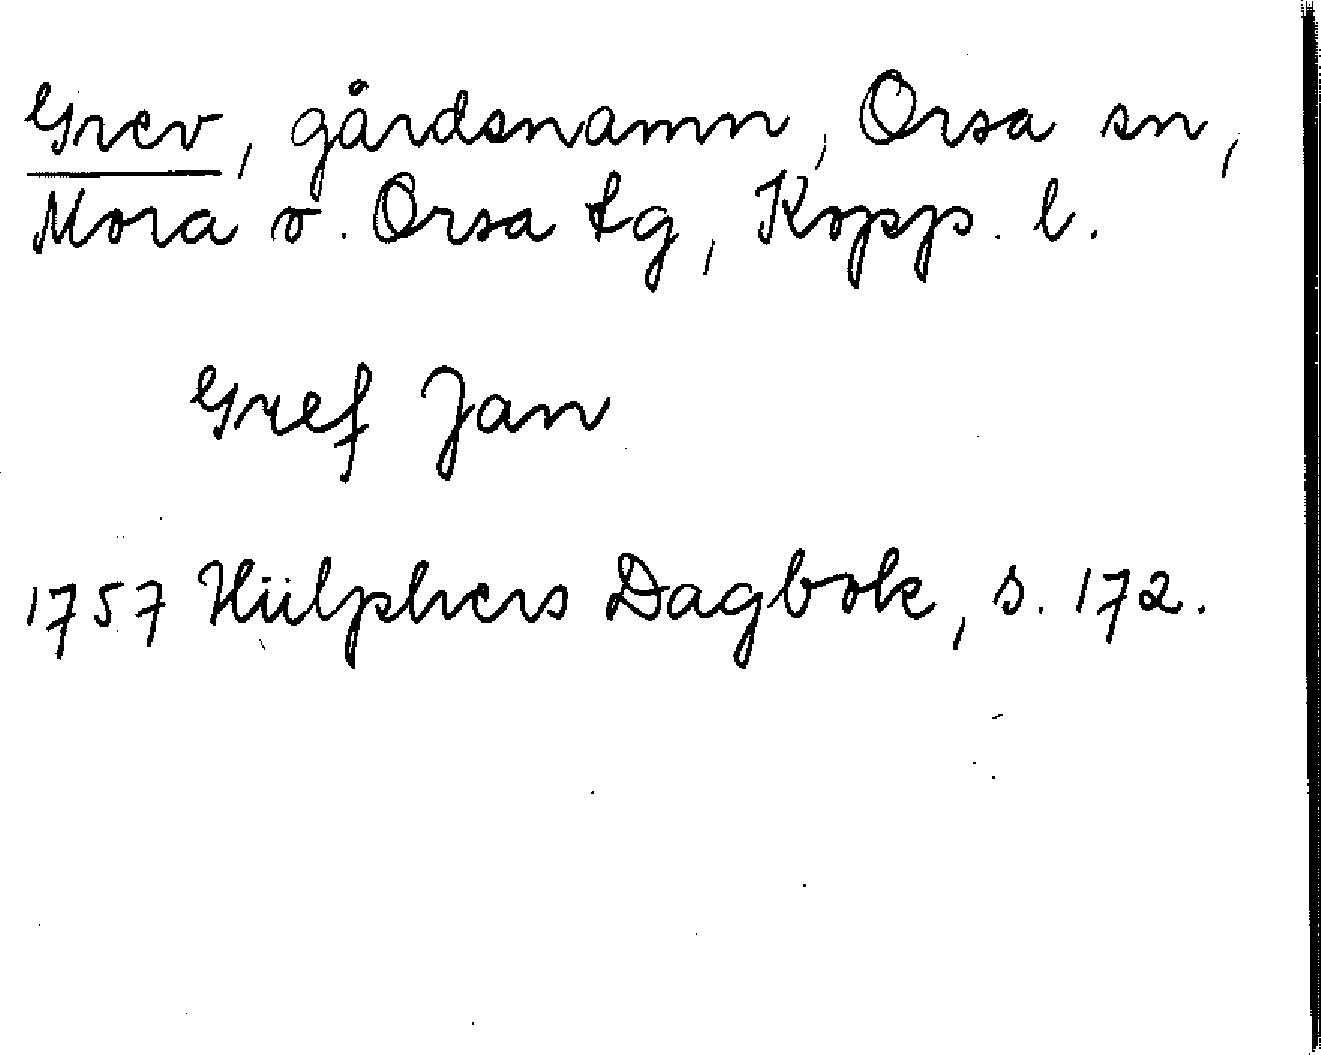 Grev, gårdsnamn, Orsa sn,
Mora o. Orsa tg, Kopp. l.
Gref Jan
1757 Hülphers Dagbok, s. 172.